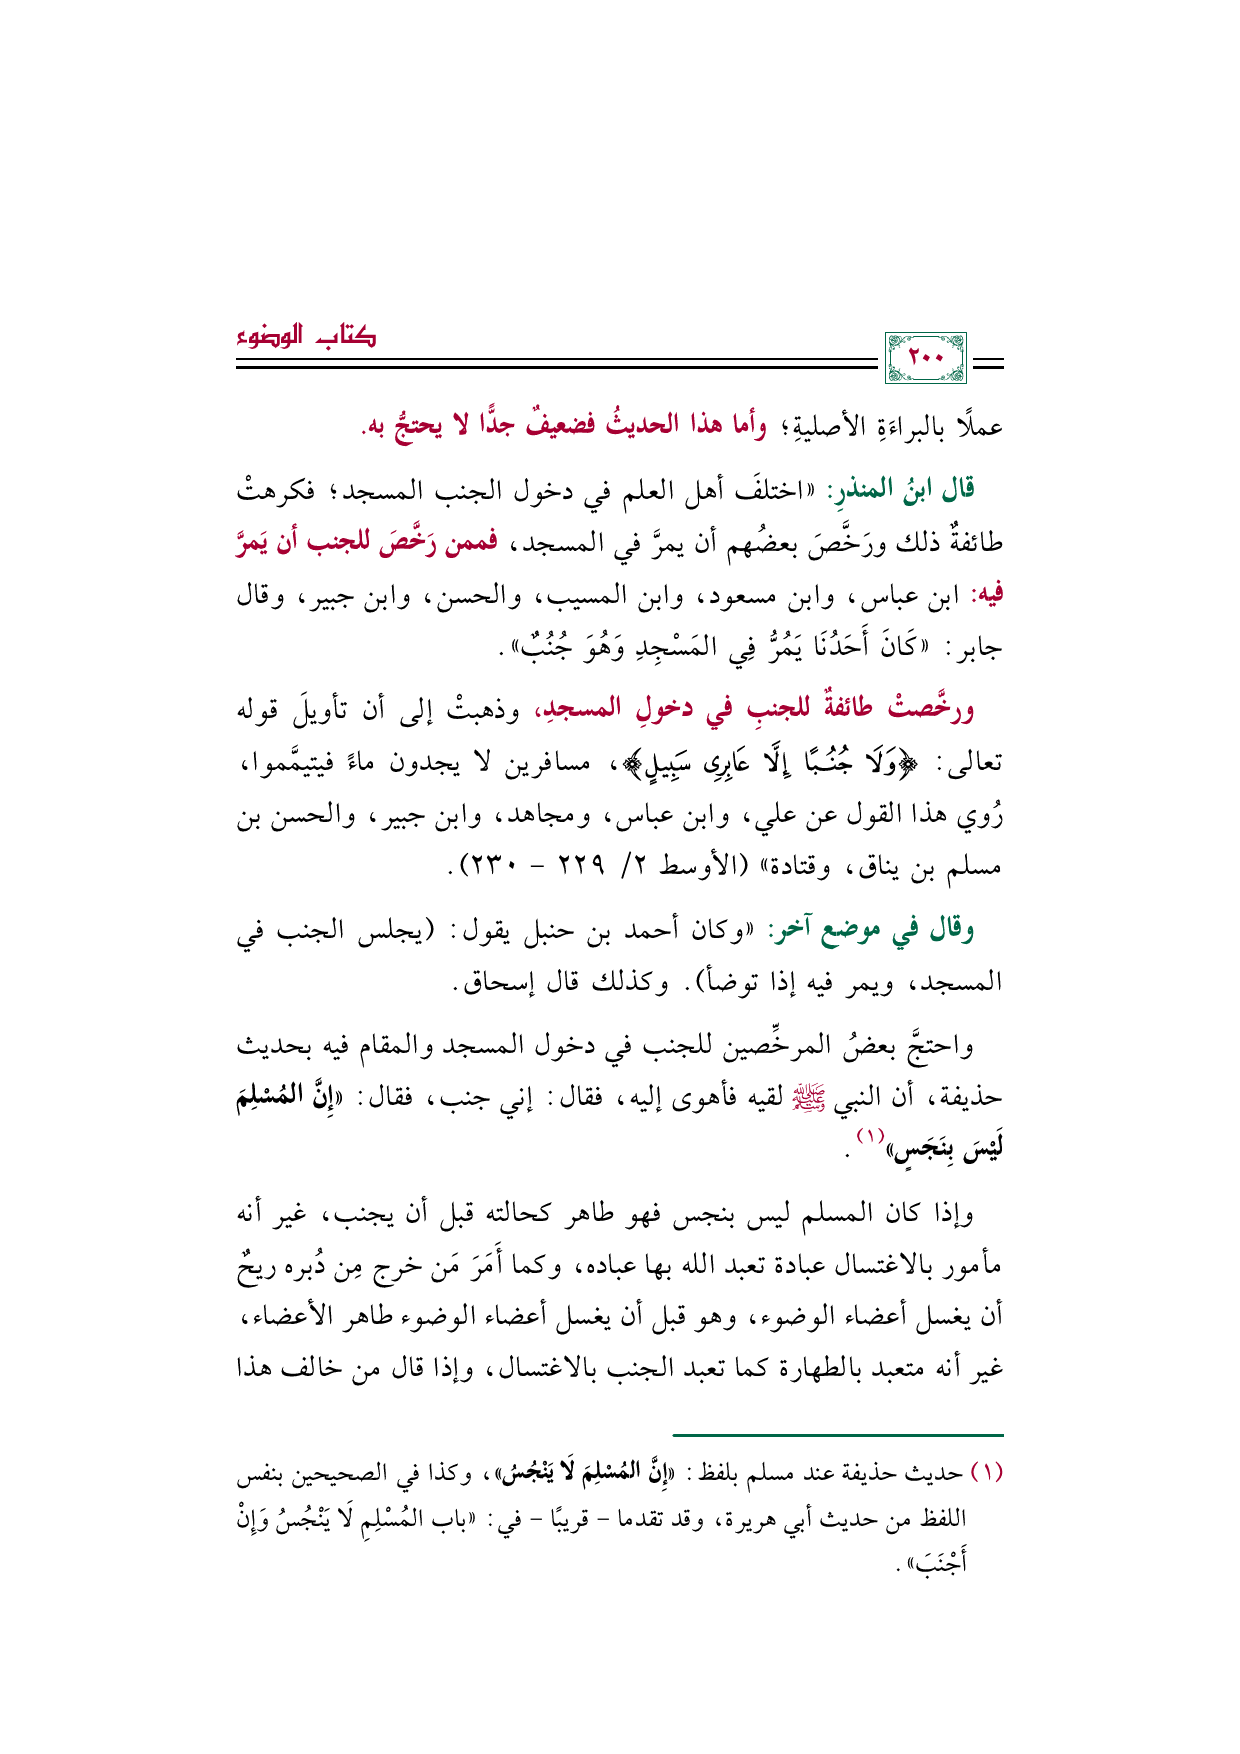 كتاب الوضوء
٢٠٠
عملًا بالبراءَةِ الأصليةِ؛ وأما هذا الحديثُ فضعيفٌ جدًّا لا يحتجُّ به.
قال ابنُ المنذرِ: «اختلفَ أهل العلم في دخول الجنب المسجد؛ فكرهتْ
طائفةٌ ذلك ورَخَّصَ بعضُهم أن يمرَّ في المسجد، فممن رَخَّصَ للجنب أن يَمرَّ
فيه: ابن عباس، وابن مسعود، وابن المسيب، والحسن، وابن جبير، وقال
جابر: «كَانَ أَحَدُنَا يَمُرُّ فِي المَسْجِدِ وَهُوَ جُنُبٌ».
ورخَّصتْ طائفةٌ للجنبِ في دخولِ المسجدِ، وذهبتْ إلى أن تأويلَ قوله
تعالى: ﴿وَلَا جُنُبًا إِلَّا عَابِرِى سَبِيلٍ﴾، مسافرين لا يجدون ماءً فيتيمَّموا،
رُوي هذا القول عن علي، وابن عباس، ومجاهد، وابن جبير، والحسن بن
مسلم بن يناق، وقتادة» (الأوسط ٢/ ٢٢٩ - ٢٣٠).
وقال في موضع آخر: «وكان أحمد بن حنبل يقول: (يجلس الجنب في
المسجد، ويمر فيه إذا توضأ). وكذلك قال إسحاق.
واحتجَّ بعضُ المرخِّصين للجنب في دخول المسجد والمقام فيه بحديث
حذيفة، أن النبي ﷺ لقيه فأهوى إليه، فقال: إني جنب، فقال: «إِنَّ المُسْلِمَ
لَيْسَ بِنَجَسٍ»(١).
وإذا كان المسلم ليس بنجس فهو طاهر كحالته قبل أن يجنب، غير أنه
مأمور بالاغتسال عبادة تعبد الله بها عباده، وكما أَمَرَ مَن خرج مِن دُبره ريحٌ
أن يغسل أعضاء الوضوء، وهو قبل أن يغسل أعضاء الوضوء طاهر الأعضاء،
غير أنه متعبد بالطهارة كما تعبد الجنب بالاغتسال، وإذا قال من خالف هذا
(١) حديث حذيفة عند مسلم بلفظ: «إِنَّ المُسْلِمَ لَا يَنْجُسُ»، وكذا في الصحيحين بنفس
اللفظ من حديث أبي هريرة، وقد تقدما - قريبًا - في: «باب المُسْلِمِ لَا يَنْجُسُ وَإِنْ
أَجْنَبَ».